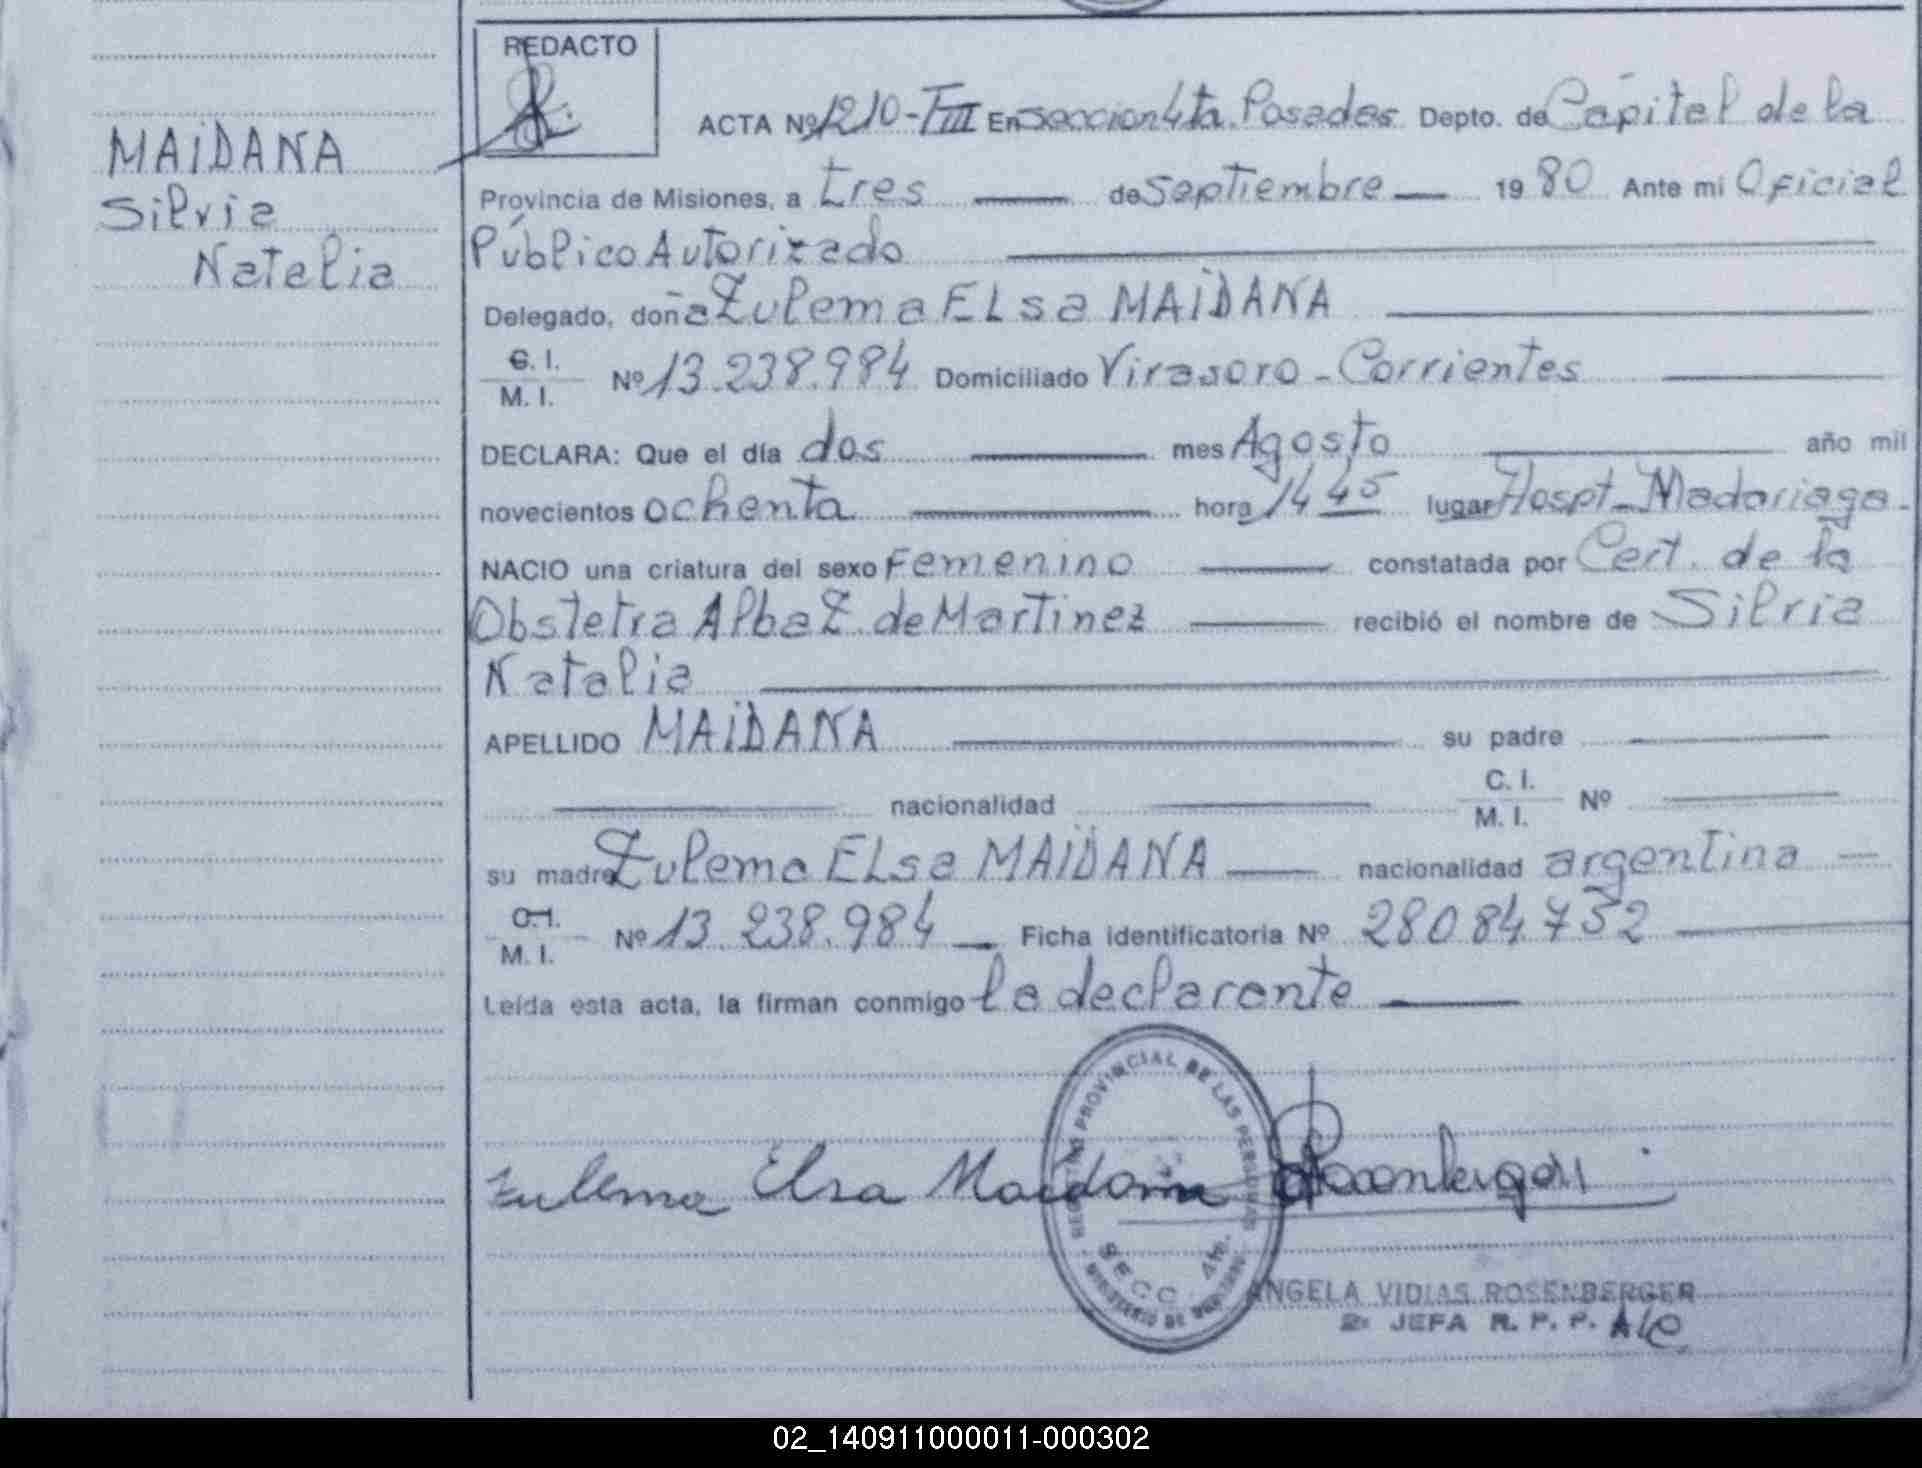 REDACTO
MAIDANA
Silvia
Natalia
ACTA Nº 1210-TIII En seccion 4ta. Posadas Depto. de Capital de la
Provincia de Misiones, a tres de septiembre 19 80 Ante mi Oficial
Público Autorizado
Delegado, doña Zulema ELsa MAIDANA
C. I.
M. I.
Nº 13.238.984 Domiciliado Virasoro - Corrientes
DECLARA: Que el día dos mes Agosto año mil
novecientos ochenta hora 14 45 lugar Hospt. Madariaga.
NACIO una criatura del sexo Femenino constatada por Cert. de la
Obstetra Alba Z. de Martinez recibió el nombre de Silvia
Natalia
APELLIDO MAIDANA su padre
nacionalidad C. I. M. I. Nº
su madre Zulema ELsa MAIDANA nacionalidad argentina
C.I.
M. I.
Nº 13.238.984 Ficha identificatoria Nº 28084732
Leída esta acta, la firman conmigo la declarante
REGISTRO PROVINCIAL DE LAS PERSONAS
SECC. 4ta.
MINISTERIO DE
Zulema Elsa Maidana
ANGELA VIDIAS ROSENBERGER
2ª JEFA R. P. P. A/C
02_140911000011-000302